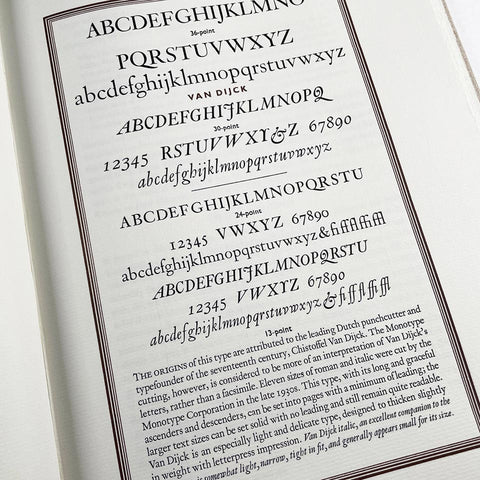 ABCDEFGHIJKLMNO
36-point
PQRSTUVWXYZ
abcdefghijklmnopqrstuvwxyz
VAN DIJCK
ABCDEFGHIJKLMNOPQ
30-point
12345 RSTUVWXY&Z 67890
abcdefghijklmnopqrstuvwxyz
ABCDEFGHIJKLMNOPQRSTU
24-point
12345 VWXYZ 67890
abcdefghijklmnopqrstuvwxyz&fiffflffiffl
ABCDEFGHIJKLMNOPQRSTU
12345 VWXYZ 67890
abcdefghijklmnopqrstuvwxyz&fiffflffiffl
13-point
THE ORIGINS of this type are attributed to the leading Dutch punchcutter and
typefounder of the seventeenth century, Chistoffel Van Dijck. The Monotype
cutting, however, is considered to be more of an interpretation of Van Dijck's
letters, rather than a facsimile. Eleven sizes of roman and italic were cut by the
Monotype Corporation in the late 1930s. This type, with its long and graceful
ascenders and descenders, can be set into pages with a minimum of leading; the
larger text sizes can be set solid with no leading and still remain quite readable.
Van Dijck is an especially light and delicate type, designed to thicken slightly
in weight with letterpress impression. Van Dijck italic, an excellent companion to the
is somewhat light, narrow, tight in fit, and generally appears small for its size.